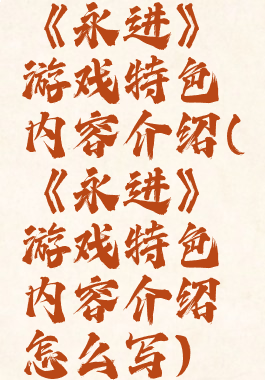 《永进》
游戏特色
内容介绍(
《永进》
游戏特色
内容介绍
怎么写)